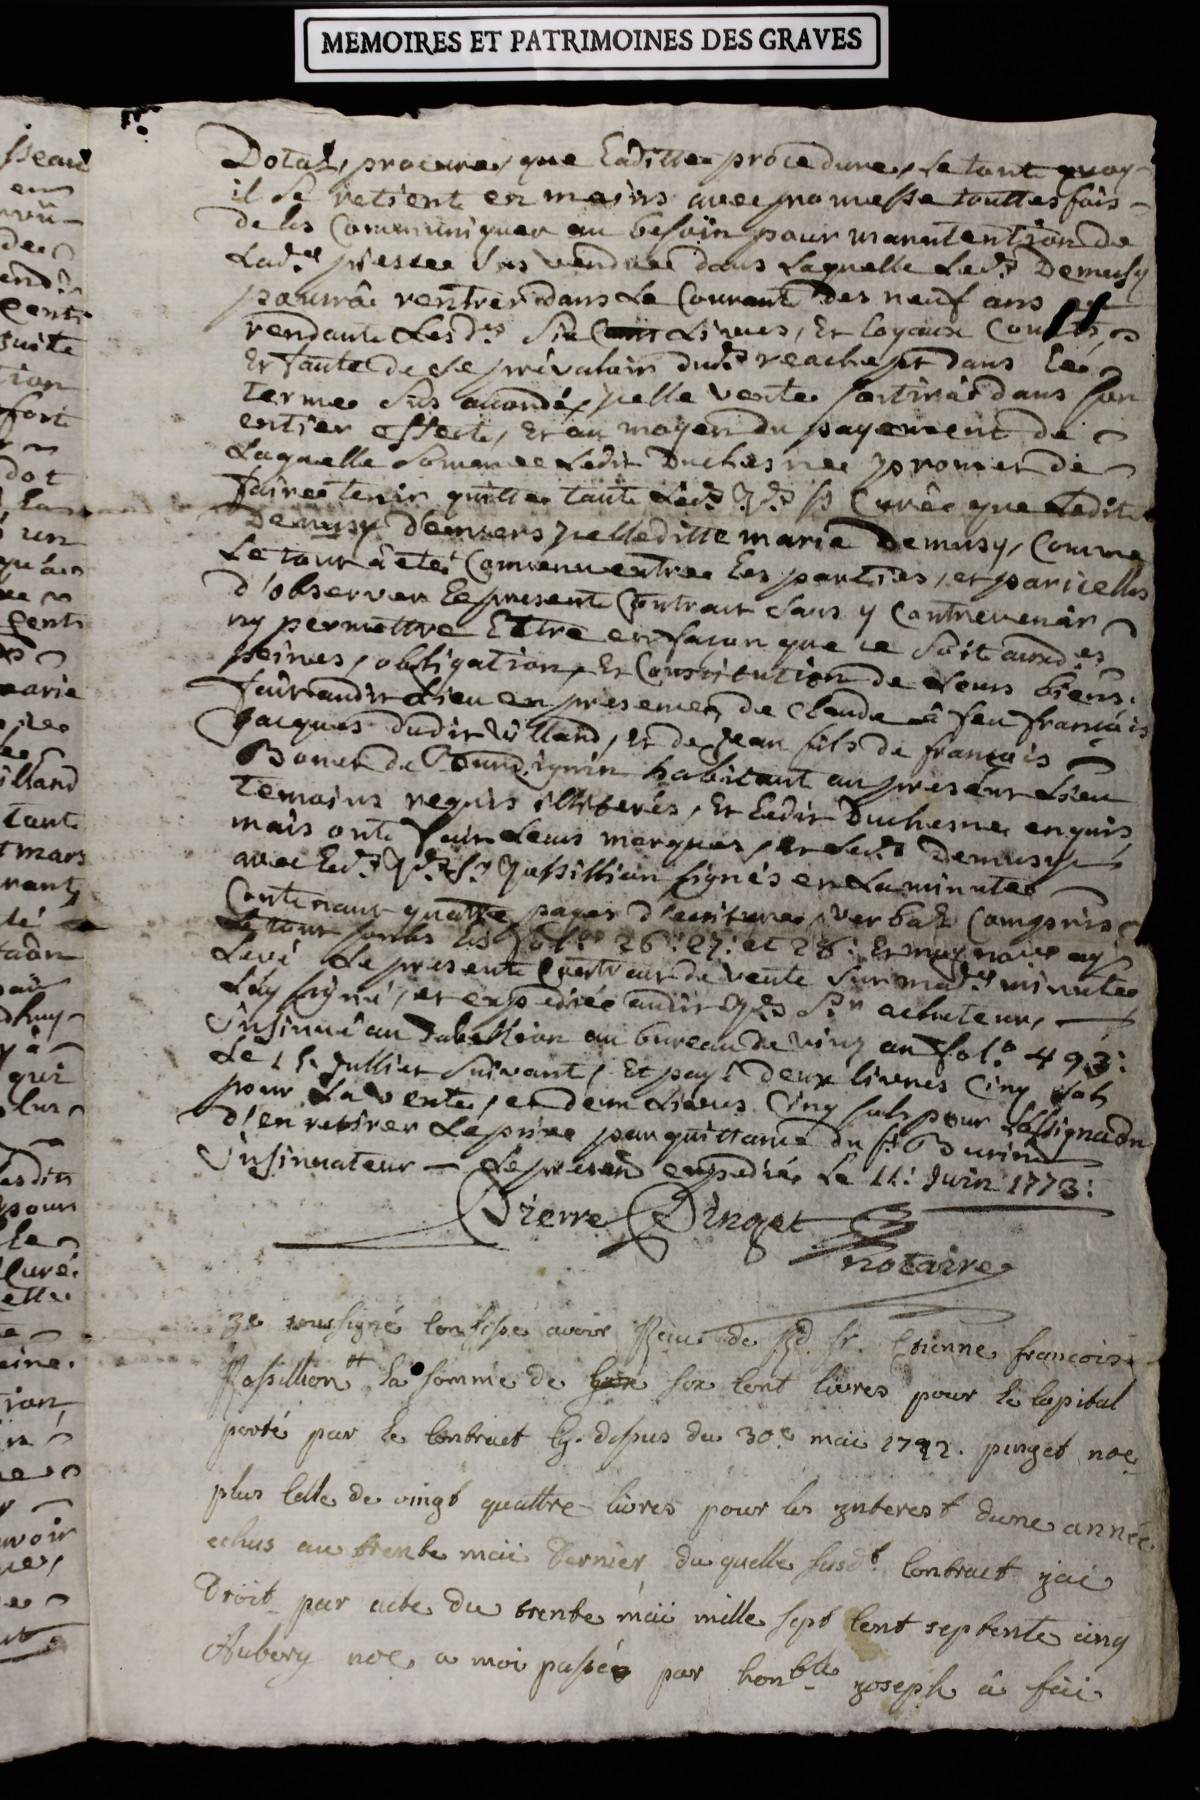 MEMOIRES ET PATRIMOINES DES GRAVES
Dotal, procure, que laditte procedure, le tout quoy
il se retient en mains avec promesse touttes fois
de les Communiquer au besoin pour manutention de
Lad.e piece sus vendue dans Laquelle Led.t Demusy
pourrâ rentrer dans Le Courant des neuf ans
rendant Lesd.es Six Livres, Et loyaux Couts,
Et faute de se prévaloir dud.t reachept dans Le
terme sus accordé, jcelle vente sortirat dans son
entier effect, Et au moyen du payement de
Laquelle Somme Ledit Duchesne promet de
faire tenir quitte tant Led.t R.d S.r Curé que Ledit
Demusy d'envers jcelleditte marie Demusy, Comme
Le tout â eté Convenu entre Les parties, et par icelles
d'observer Le present Contrait sans y Contrevenir
ny permettre Etre en facon que ce soit aux d.es
peines, obligation, Et Constitution de Leurs biens.
fait audit Lieu en presence, de Claude â feu francois
Jacques dudit Villand, et de Jean fils de francois
Bonet de habitant au present Lieu
temoins requis illiterés, Et Ledit Duchesne enquis
mais ont fait Leurs marques, et Led.t Demusy
avec Led.t R.d S.r Rassillion signés en La minutte
Contenant quattre pages d'écriture, verbal Compris
Le tout soubs Les fol.o 26: 27: et 28: Et moy not.re ay
Levé Le present Contrait de vente sur mad.e minutte
L'ay signé, et expedié audit R.d S.r acheteur,
Insinué au Tabellion au bureau de Viuz au fol.o 493:
Le 15 Juillet Suivant, Et payé deux livres Cinq sols
pour La vente, et deux Livres Cinq sols pour L'assignaôn
d'en retirer Le prix par quittance du S.r Burin
Insinuateur — Le present expedié Le 11: Juin 1773:
Pierre Pinget
notaire
Je soussigné Confesse avoir Reçu de Rd. sr. Etienne francois
Rassillion la somme de six cent livres pour le Capital
porté par le Contract Cy-dessus du 30.e mai 1772. pinget noe
plus Celle de vingt quattre livres pour les interest dune année
echus au trente mai Dernier du quelle susd.t Contract jai
Droit par acte du trente mai mille sept Cent septente cinq
Aubery noe a moi passée par hon.ble joseph â fui